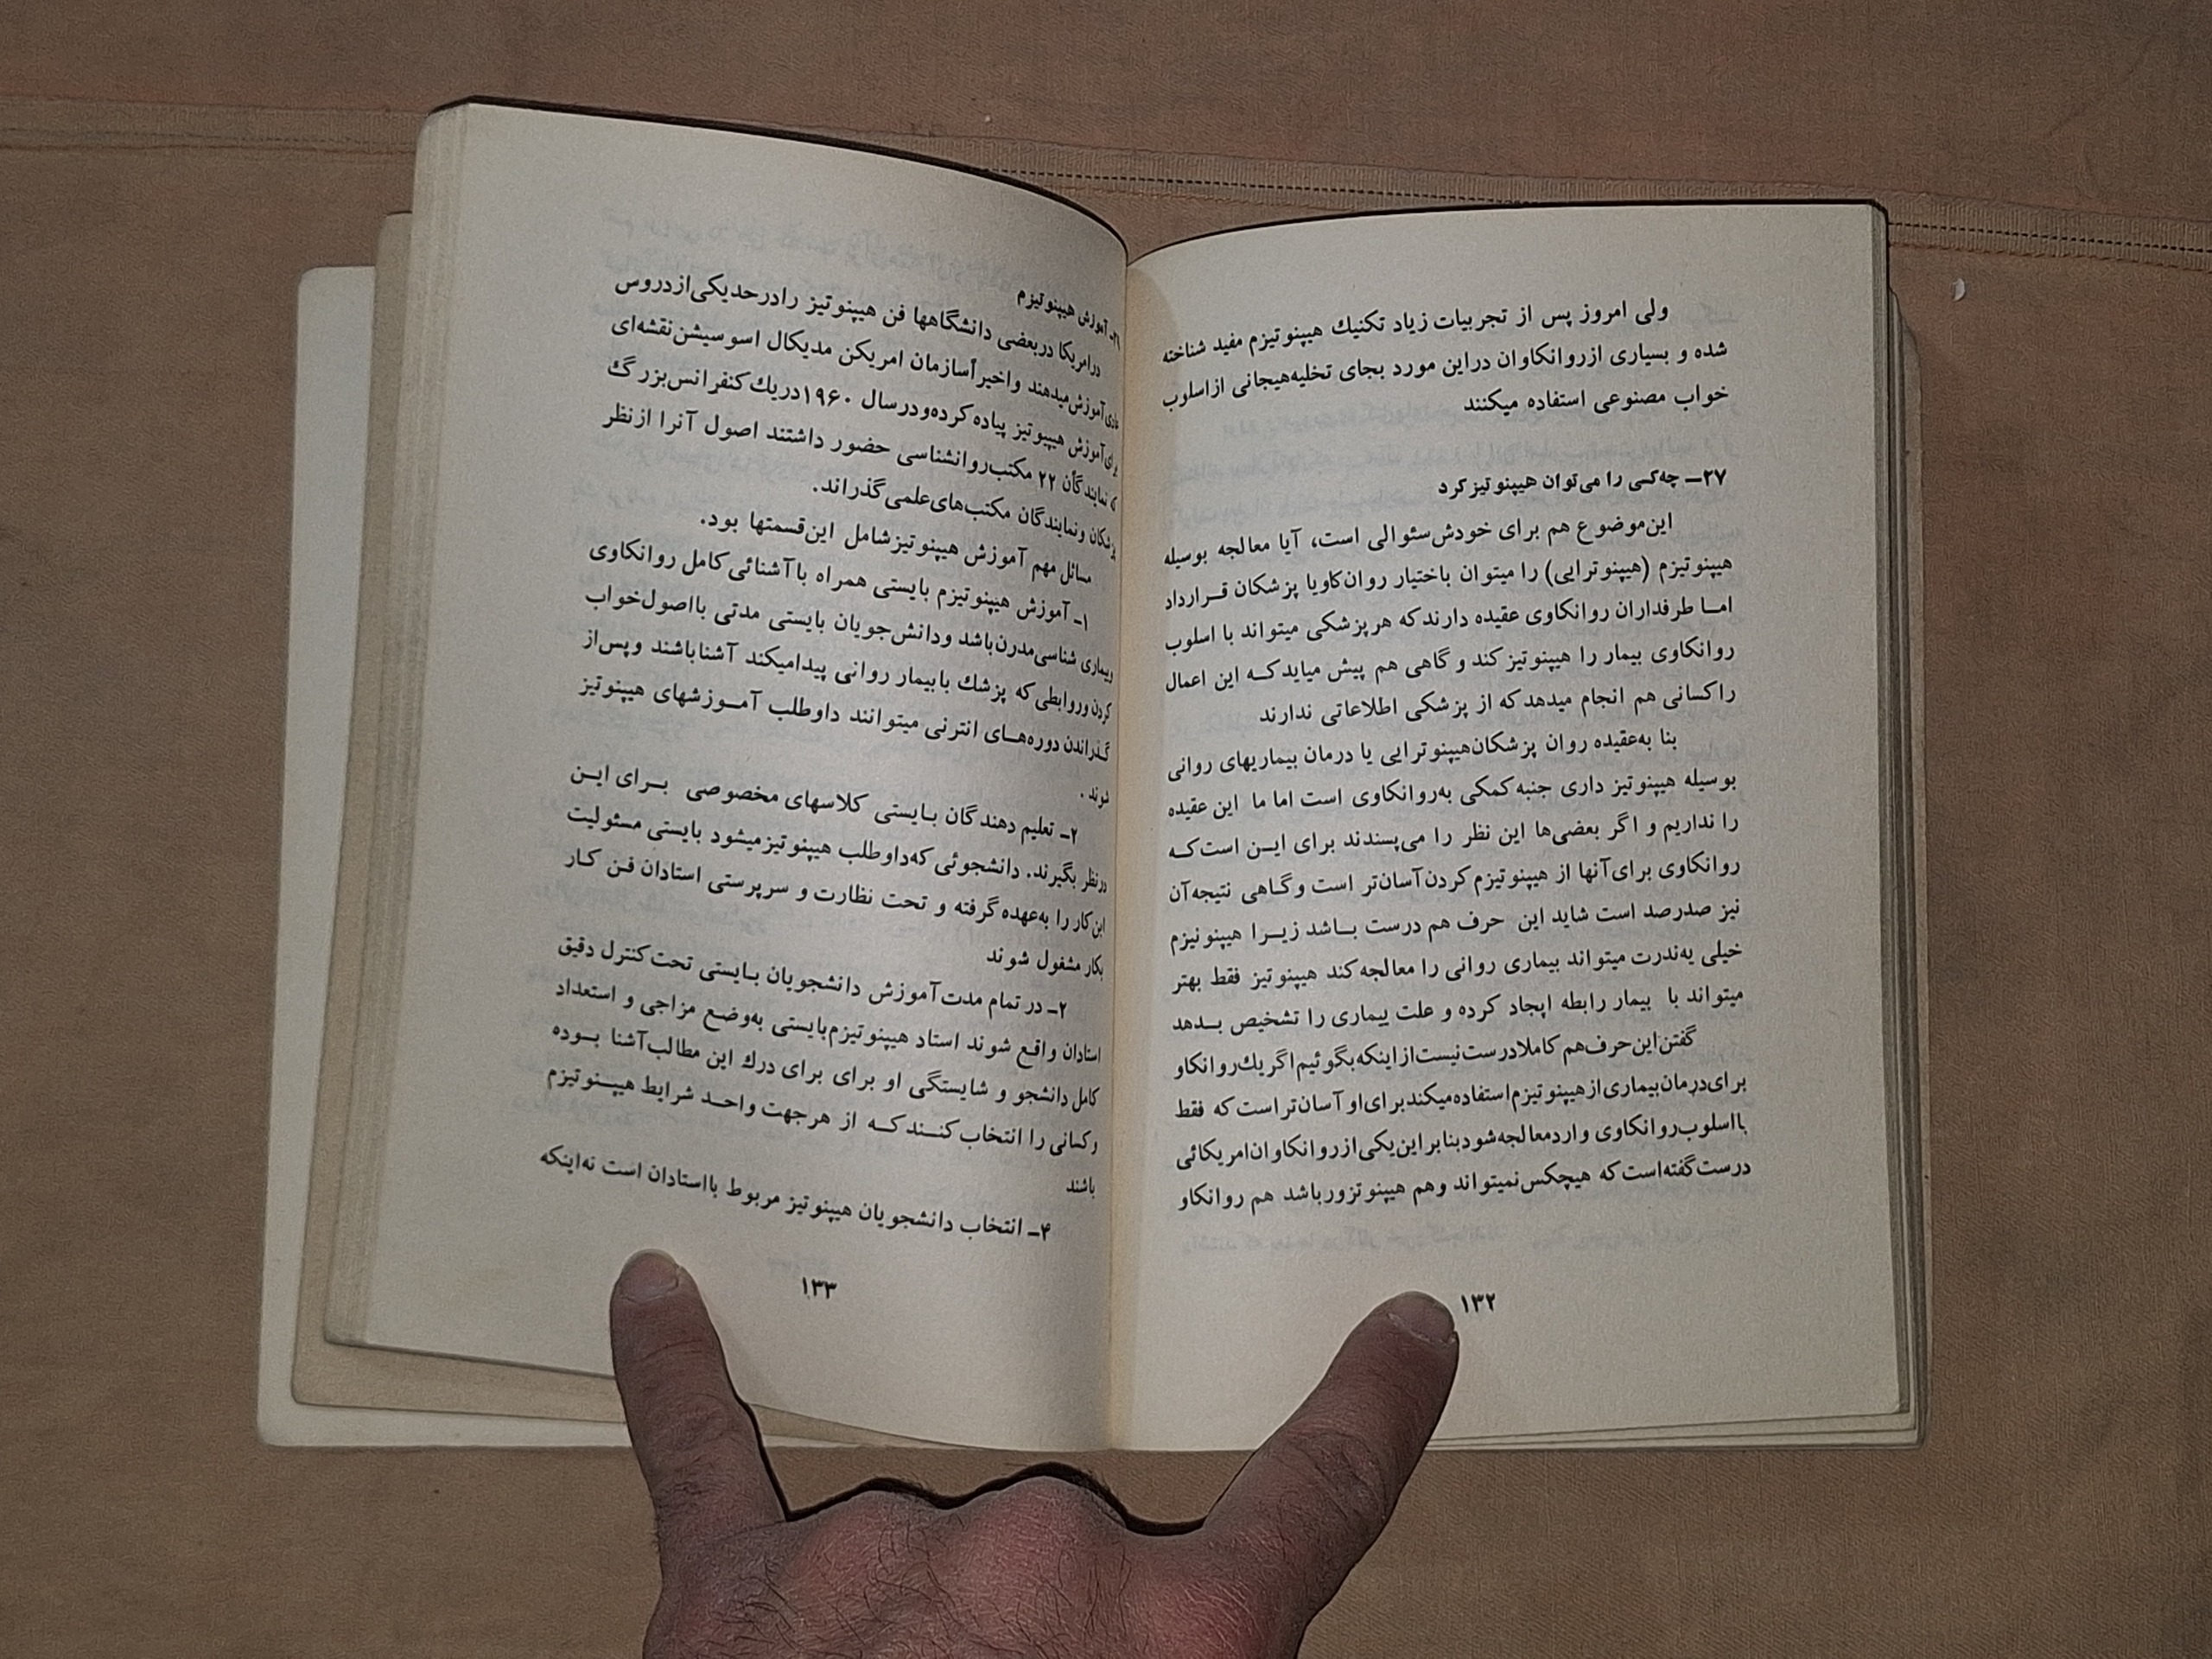 ولی امروز پس از تجربیات زیاد تکنیك هیپنوتیزم مفید شناخته
شده و بسیاری ازروانکاوان دراین مورد بجای تخلیه‌هیجانی ازاسلوب
خواب مصنوعی استفاده میکنند
۲۷ــ چه‌کسی را می‌توان هیپنوتیزکرد
این‌موضوع هم برای خودش‌سئوالی است، آیا معالجه بوسیله
هیپنوتیزم (هیپنوترایی) را میتوان باختیار روان‌کاویا پزشکان قــرارداد
امــا طرفداران روانکاوی عقیده دارندکه هرپزشکی میتواند با اسلوب
روانکاوی بیمار را هیپنوتیزکند وگاهی هم پیش میایدکــه این اعمال
راکسانی هم انجام میدهدکه از پزشکی اطلاعاتی ندارند
بنا به‌عقیده روان پزشکان‌هیپنوترایی یا درمان بیماریهای روانی
بوسیله هیپنوتیز داری جنبه‌کمکی به‌روانکاوی است اما ما این عقیده
را نداریم و اگر بعضی‌ها این نظر را می‌پسندند برای ایــن است‌کــه
روانکاوی برای‌آنها از هیپنوتیزم کردن‌آسان‌تر است وگــاهی نتیجه‌آن
نیز صدرصد است شاید این حرف هم درست بــاشد زیــرا هیپنوتیزم
خیلی به‌ندرت میتواند بیماری روانی را معالجه‌کند هیپنوتیز فقط بهتر
میتواند با بیمار رابطه ایجاد کرده و علت بیماری را تشخیص بــدهد
گفتن‌این‌حرف‌هم کاملادرست‌نیست‌ازاینکه‌بگوئیم‌اگریك‌روانکاو
برای‌درمان‌بیماری‌ازهیپنوتیزم‌استفاده‌میکندبرای‌او آسان‌تراست‌که فقط
بااسلوب‌روانکاوی واردمعالجه‌شودبنابراین‌یکی‌ازروانکاوان‌امریکائی
درست‌گفته‌است‌که هیچکس‌نمیتواند وهم هیپنوتزورباشد هم روانکاو
۱۳۲
آموزش هیپنوتیزم
درامریکا دربعضی دانشگاهها فن هیپنوتیز رادرحدیکی‌ازدروس
عادی‌آموزش‌میدهند واخیراًسازمان امریکن مدیکال اسوسیشن‌نقشه‌ای
برای‌آموزش هیپیوتیز پیاده‌کرده‌ودرسال ۱۹۶۰دریك‌کنفرانس‌بزرگ
که نمایندگان ۲۲ مکتب‌روانشناسی حضور داشتند اصول آنرا ازنظر
پزشکان ونمایندگان مکتب‌های‌علمی‌گذراند.
مسائل مهم آموزش هیپنوتیزشامل این‌قسمتها بود.
۱ــ آموزش هیپنوتیزم بایستی همراه باآشنائی‌کامل روانکاوی
وبیماری شناسی‌مدرن‌باشد ودانش‌جویان بایستی مدتی بااصول‌خواب
کردن وروابطی‌که پزشك بابیمار روانی پیدامیکند آشناباشند وپس‌از
گـذراندن دوره‌هــای انترنی میتوانند داوطلب آمــوزشهای هیپنوتیز
شوند.
۲ــ تعلیم دهندگان بـایستی کلاسهای مخصوصی بــرای ایــن
درنظر بگیرند. دانشجوئی که‌داوطلب هیپنوتیزمیشود بایستی مسئولیت
این‌کار را به‌عهده‌گرفته و تحت نظارت و سرپرستی استادان فـن کـار
بکار مشغول شوند
۲ــ در تمام مدت‌آموزش دانشجویان بـایستی تحت‌کنترل دقیق
استادان واقـع شوند استاد هیپنوتیزم‌بایستی به‌وضـع مزاجی و استعداد
کامل دانشجو و شایستگی او برای برای درك این مطالب‌آشنا بــوده
وکسانی را انتخاب‌کننـدکــه از هرجهت واحــد شرایط هیپــنوتیزم
باشند
۴ــ انتخاب دانشجویان هیپنوتیز مربوط بااستادان است نه‌اینکه
۱۳۳